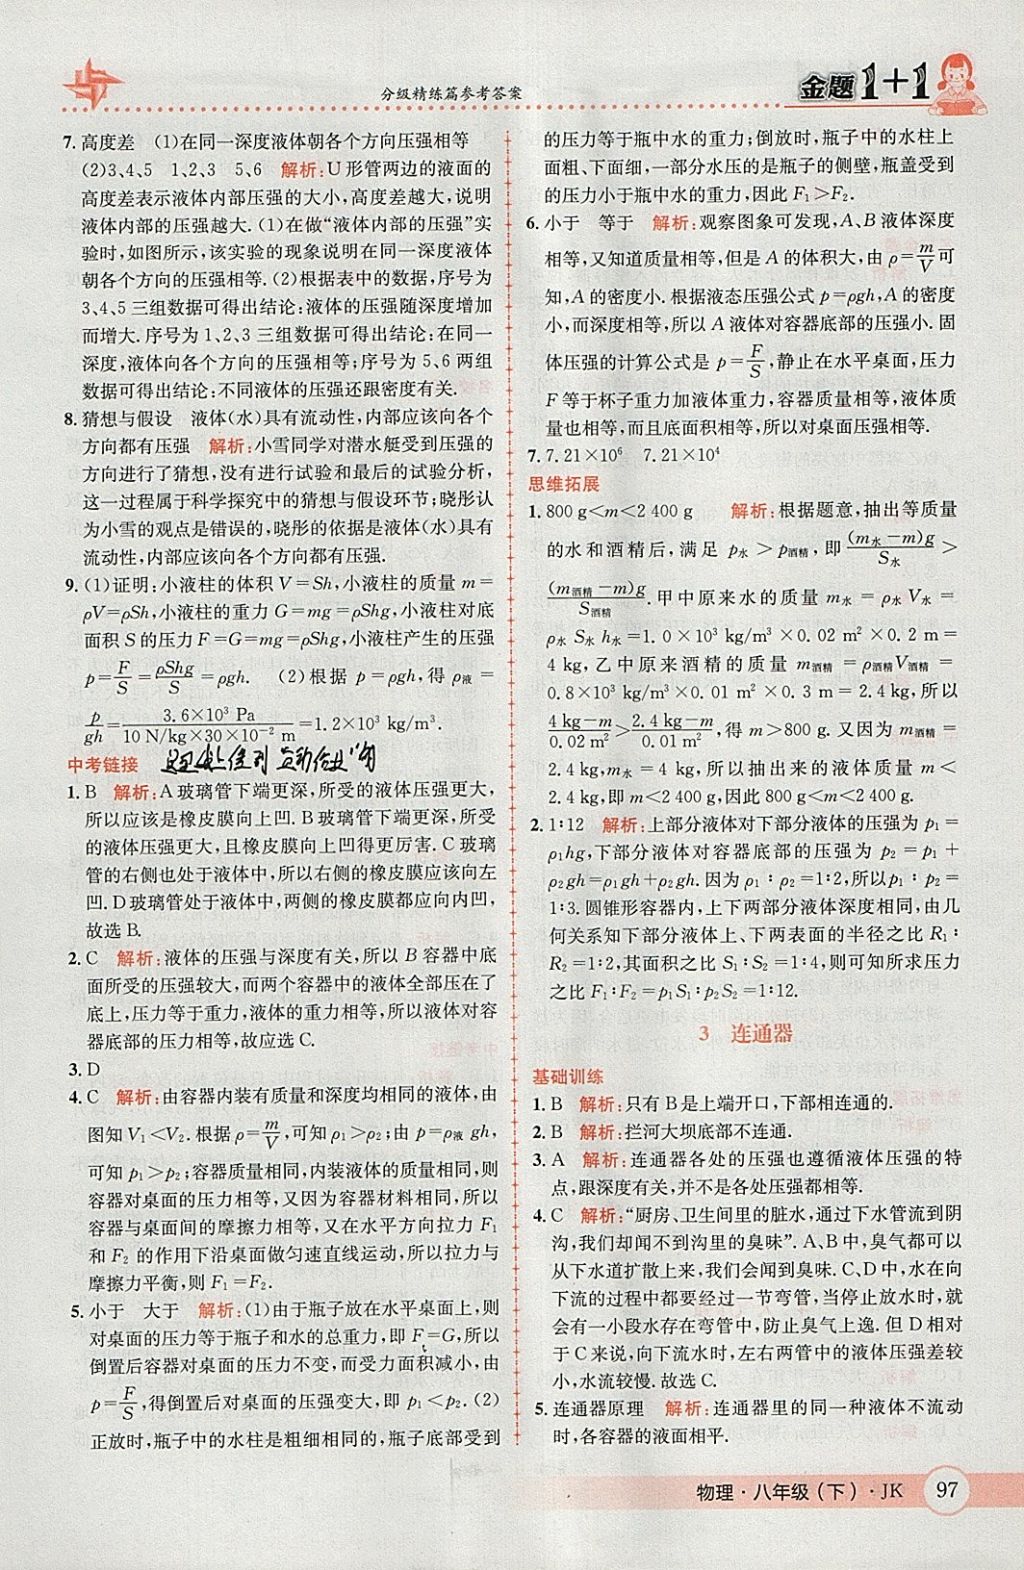 分级精练篇参考答案
金题1+1
7. 高度差 (1)在同一深度液体朝各个方向压强相等
(2)3、4、5 1、2、3 5、6 解析:U形管两边的液面的
高度差表示液体内部压强的大小,高度差越大,说明
液体内部的压强越大.(1)在做“液体内部的压强”实
验时,如图所示,该实验的现象说明在同一深度液体
朝各个方向的压强相等.(2)根据表中的数据,序号为
3、4、5三组数据可得出结论:液体的压强随深度增加
而增大.序号为1、2、3三组数据可得出结论:在同一
深度,液体向各个方向的压强相等;序号为5、6两组
数据可得出结论:不同液体的压强还跟密度有关.
8. 猜想与假设 液体(水)具有流动性,内部应该向各个
方向都有压强 解析:小雪同学对潜水艇受到压强的
方向进行了猜想,没有进行试验和最后的试验分析,
这一过程属于科学探究中的猜想与假设环节;晓彤认
为小雪的观点是错误的,晓彤的依据是液体(水)具有
流动性,内部应该向各个方向都有压强.
9. (1)证明:小液柱的体积V=Sh,小液柱的质量m=
ρV=ρSh,小液柱的重力G=mg=ρShg,小液柱对底
面积S的压力F=G=mg=ρShg,小液柱产生的压强
p=F/S=ρShg/S=ρgh. (2)根据p=ρgh,得ρ液=
p/gh=3.6×10³ Pa/(10 N/kg×30×10⁻² m)=1.2×10³ kg/m³.
中考链接
1. B 解析:A玻璃管下端更深,所受的液体压强更大,
所以应该是橡皮膜向上凹.B玻璃管下端更深,所受
的压强更大,且橡皮膜向上凹得更厉害.C玻璃
管的右侧也处于液体中,所以右侧的橡皮膜应该向左
凹.D玻璃管处于液体中,两侧的橡皮膜都应向内凹,
故选B.
2. C 解析:液体的压强与深度有关,所以B容器中底
面所受的压强较大,而两个容器中的液体全部压在了
底上,压力等于重力,液体的重力相等,所以液体对容
器底部的压力相等,故应选C.
3. D
4. C 解析:由容器内装有质量和深度均相同的液体,由
图知V₁<V₂.根据ρ=m/V,可知ρ₁>ρ₂;由p=ρ液gh,
可知p₁>p₂;容器质量相同,内装液体的质量相同,则
容器对桌面的压力相等,又因为容器材料相同,所以
容器与桌面间的摩擦力相等,又在水平方向拉力F₁
和F₂的作用下沿桌面做匀速直线运动,所以拉力与
摩擦力平衡,则F₁=F₂.
5. 小于 大于 解析:(1)由于瓶子放在水平桌面上,则
对桌面的压力等于瓶子和水的总重力,即F=G,所以
倒置后容器对桌面的压力不变,而受力面积减小,由
p=F/S,得倒置后对桌面的压强变大,即p₁<p₂.(2)
正放时,瓶子中的水柱是粗细相同的,瓶子底部受到
的压力等于瓶中水的重力;倒放时,瓶子中的水柱上
面粗、下面细,一部分水压的是瓶子的侧壁,瓶盖受到
的压力小于瓶中水的重力,因此F₁>F₂.
6. 小于 等于 解析:观察图象可发现,A、B液体深度
相等,又知道质量相等,但是A的体积大,由ρ=m/V可
知,A的密度小.根据液态压强公式p=ρgh,A的密度
小,而深度相等,所以A液体对容器底部的压强小.固
体压强的计算公式是p=F/S,静止在水平桌面,压力
F等于杯子重力加液体重力,容器质量相等,液体质
量也相等,而且底面积相等,所以对桌面压强相等.
7. 7.21×10⁶ 7.21×10⁴
思维拓展
1. 800 g<m<2 400 g 解析:根据题意,抽出等质量
的水和酒精后,满足p水>p酒精,即(m水-m)g/S水>
(m酒精-m)g/S酒精.甲中原来水的质量m水=ρ水V水=
ρ水S水h水=1.0×10³ kg/m³×0.02 m²×0.2 m=
4 kg,乙中原来酒精的质量m酒精=ρ酒精V酒精=
0.8×10³ kg/m³×0.01 m²×0.3 m=2.4 kg,所以
(4 kg-m)/0.02 m²>(2.4 kg-m)/0.01 m²,得m>800 g.又因为m酒精=
2.4 kg,m水=4 kg,所以抽出来的液体质量m<
2.4 kg,即m<2 400 g,因此800 g<m<2 400 g.
2. 1∶12 解析:上部分液体对下部分液体的压强为p₁=
ρ₁hg,下部分液体对容器底部的压强为p₂=p₁+
ρ₂gh=ρ₁gh+ρ₂gh.因为ρ₁∶ρ₂=1∶2,所以p₁∶p₂=
1∶3.圆锥形容器内,上下两部分液体深度相同,由几
何关系知下部分液体上、下两表面的半径之比R₁∶
R₂=1∶2,其面积之比S₁∶S₂=1∶4,则可知所求压力
之比F₁∶F₂=p₁S₁∶p₂S₂=1∶12.
3 连通器
基础训练
1. B 解析:只有B是上端开口,下部相连通的.
2. B 解析:拦河大坝底部不连通.
3. A 解析:连通器各处的压强也遵循液体压强的特
点,跟深度有关,并不是各处压强都相等.
4. C 解析:“厨房、卫生间里的脏水,通过下水管流到阴
沟,我们却闻不到沟里的臭味”.A、B中,臭气都可以
从下水道扩散上来,我们会闻到臭味.C、D中,水在向
下流的过程中都要经过一节弯管,当停止放水时,就
会有一小段水存在弯管中,防止臭气上逸.但D相对
于C来说,向下流水时,左右两管中的液体压强差较
小,水流较慢.故选C.
5. 连通器原理 解析:连通器里的同一种液体不流动
时,各容器的液面相平.
物理·八年级(下)·JK 97